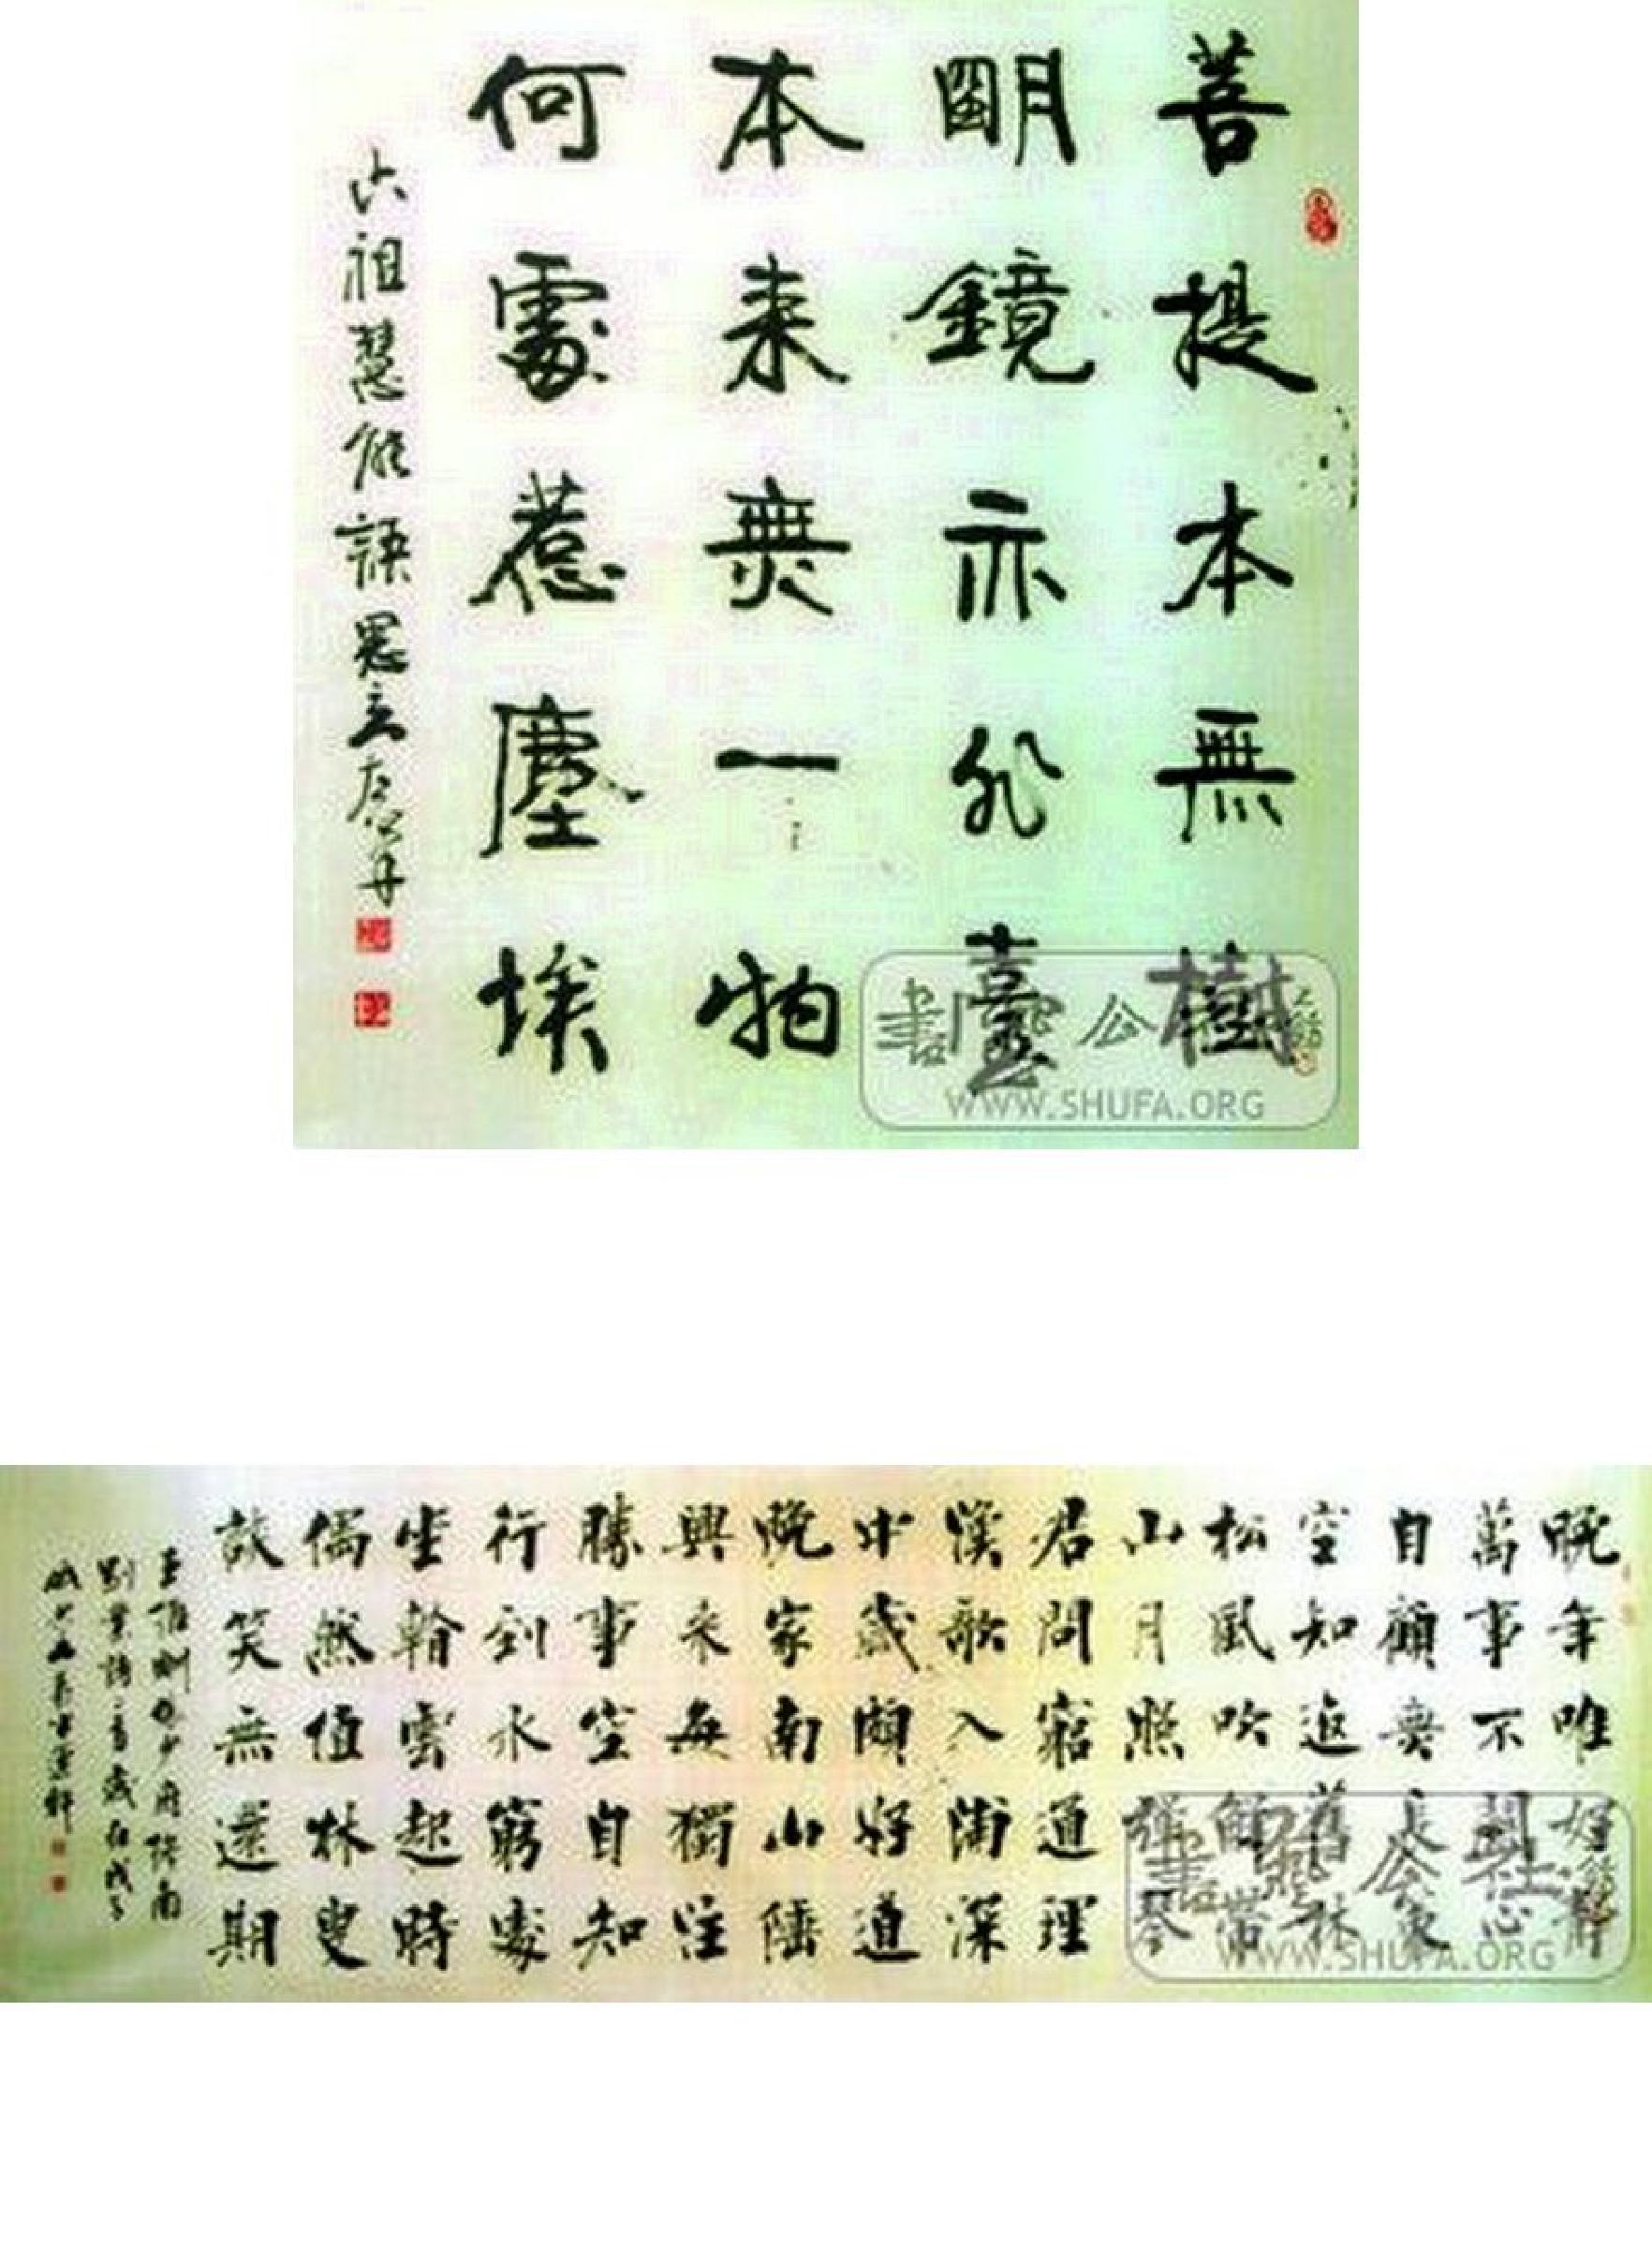 菩提本無樹
明鏡亦非臺
本来無一物
何處惹塵埃
六祖慧能語
WWW.SHUFA.ORG
晚年唯好靜
萬事不關心
自顧無長策
空知返舊林
松風吹解帶
山月照彈琴
君問窮通理
漁歌入浦深
中歲頗好道
晚家南山陲
興来每獨往
勝事空自知
行到水窮處
坐看雲起時
偶然值林叟
談笑無還期
王維酬張少府終南
別業詩二首歲在戊子
WWW.SHUFA.ORG